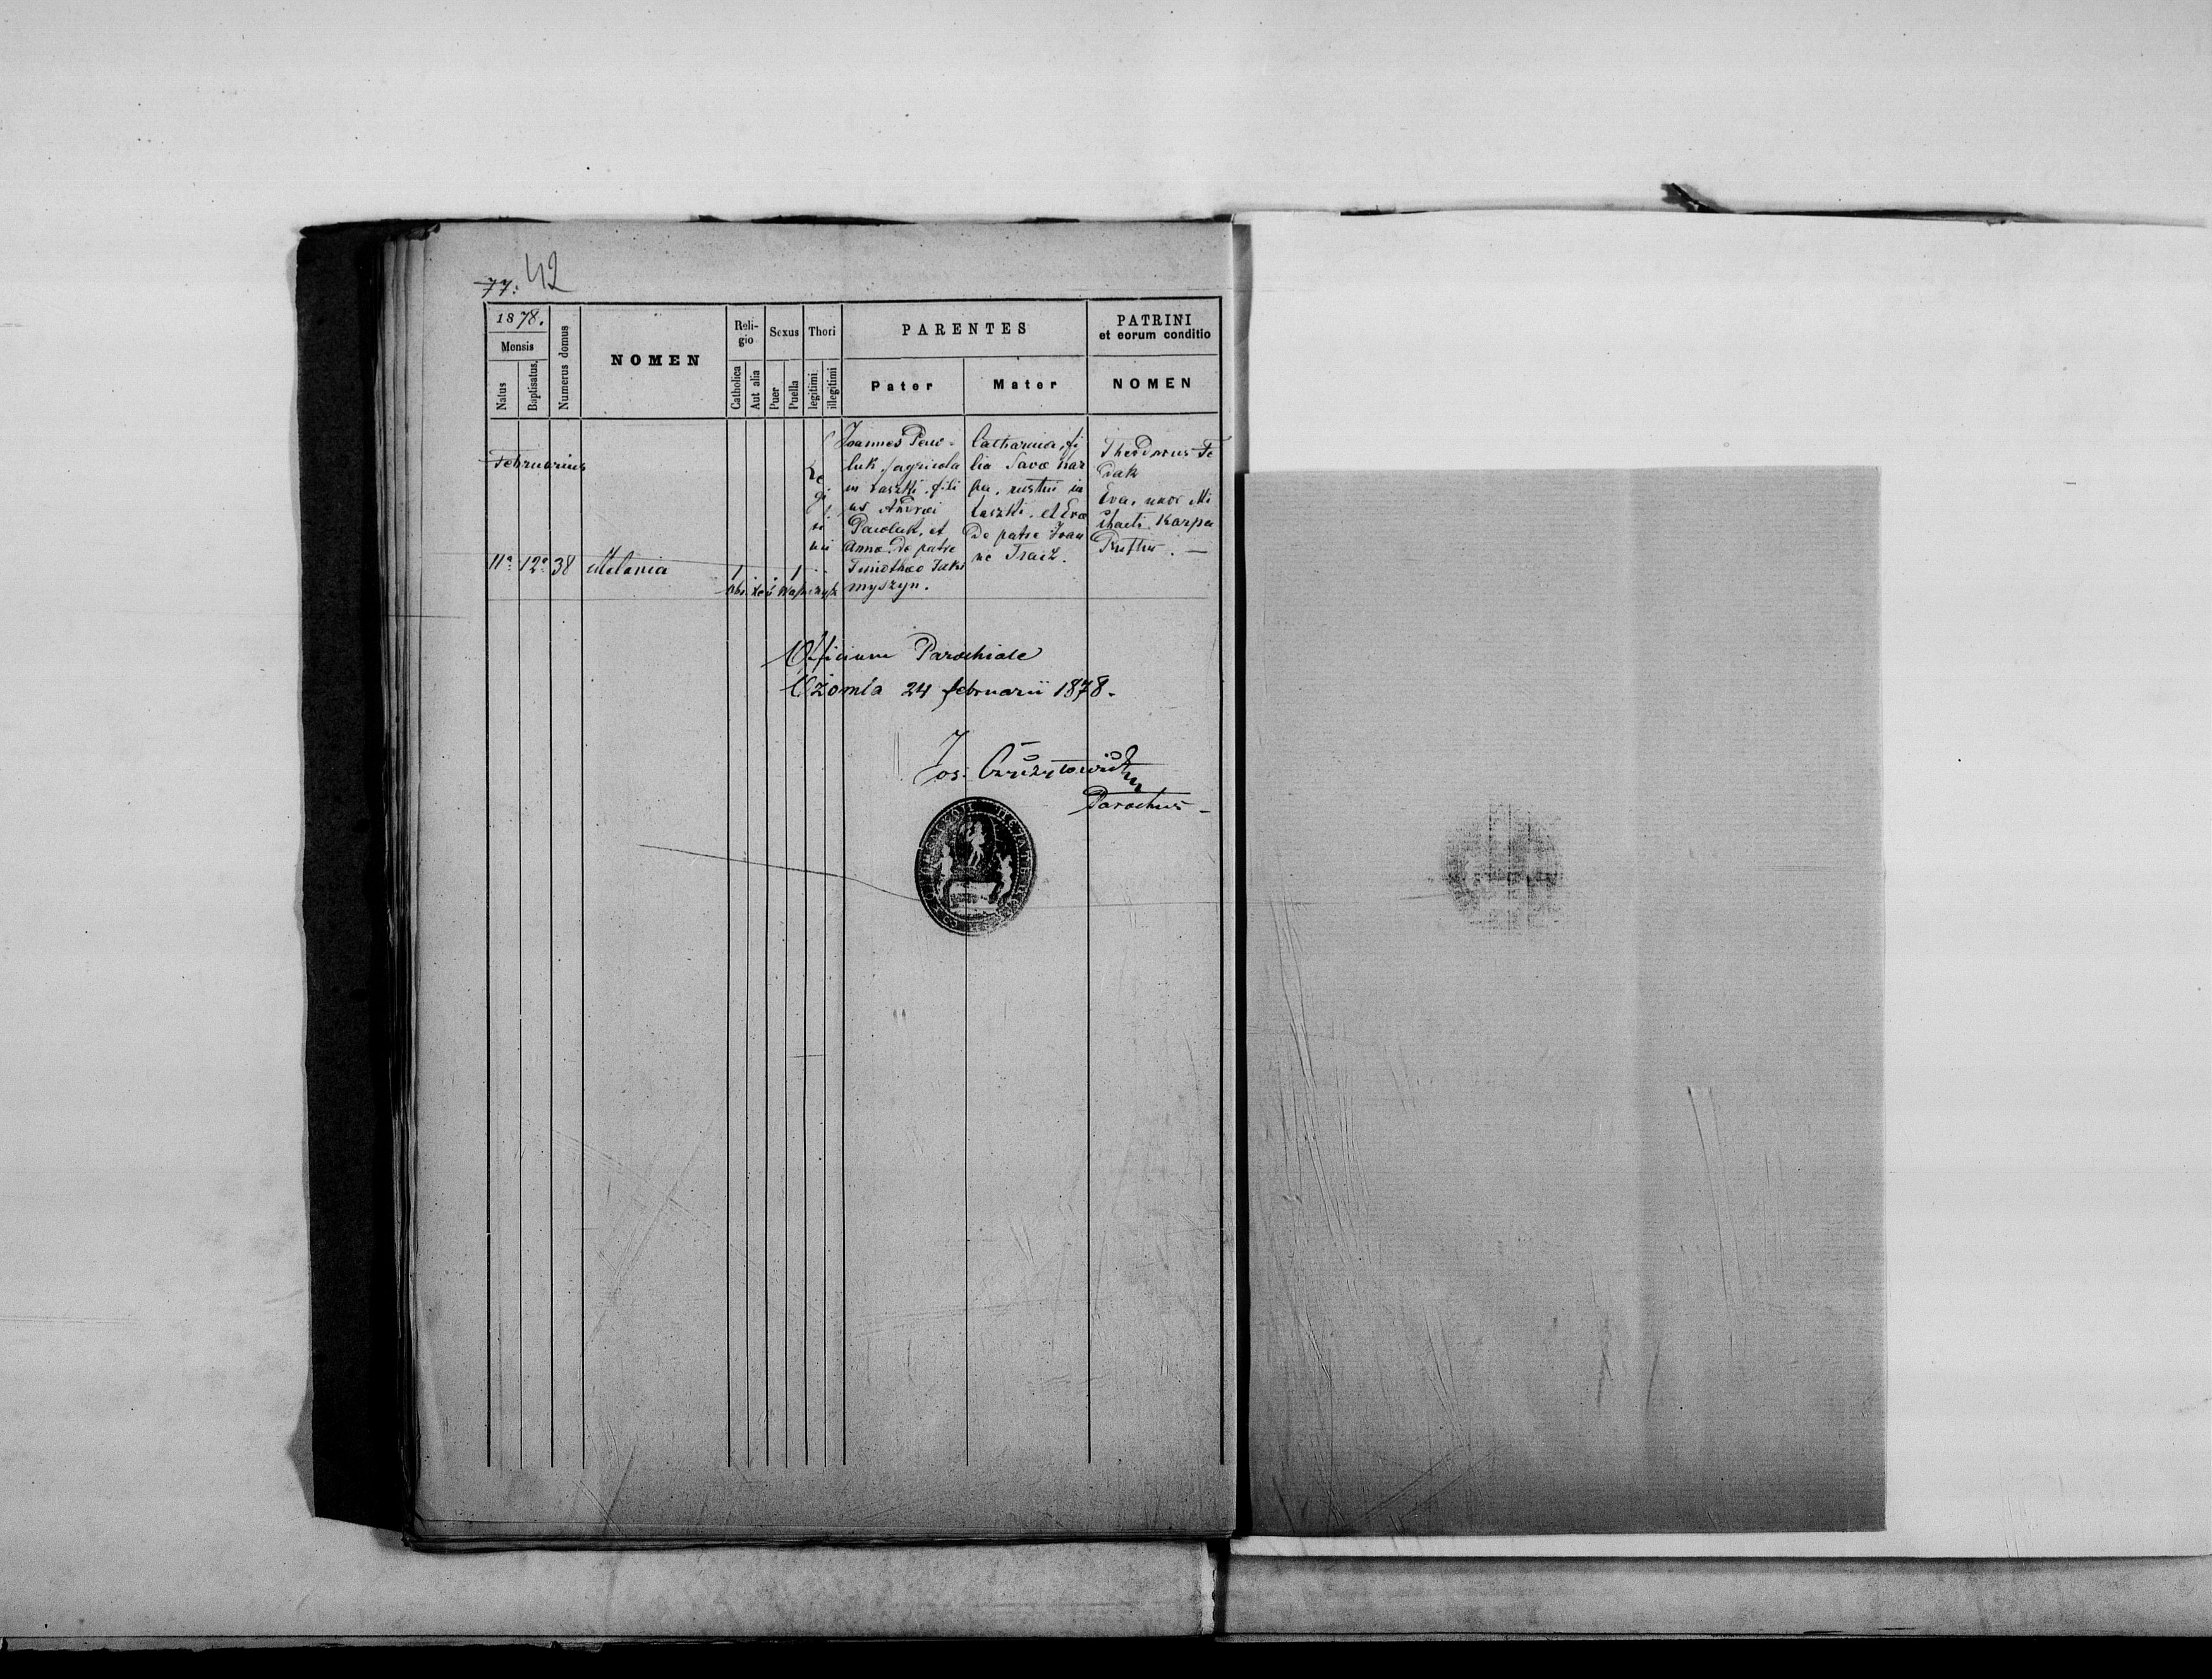 77: 42
1878.
Mensis
Natus
Baptisatus.
Numerus domus
NOMEN
Reli-
gio
Catholica
Aut alia
Sexus
Puer
Puella
Thori
legitimi
illegitimi
PARENTES
Pater
Mater
PATRINI
et eorum conditio
NOMEN
Februarius
11a 12a 38 Melania
1 1
Le
gi
ti
mi
Obs. Wapinyk
Joannes Paw-
luk, agricola
in Laszki, fili
us Andreæ
Pawluk, et
Annæ de patre
Timotheo
myszyn.
Catharina, fi
lia Savæ Kar
pa, rustici in
Laszki, et Evæ
De patre Joan
ne Traiz.
Theodorus Fe
dak
Eva, uxor Mi
chaeli Karpa
.—
Officium Parochiale
24 februarii 1878.
Jos.
Parochus